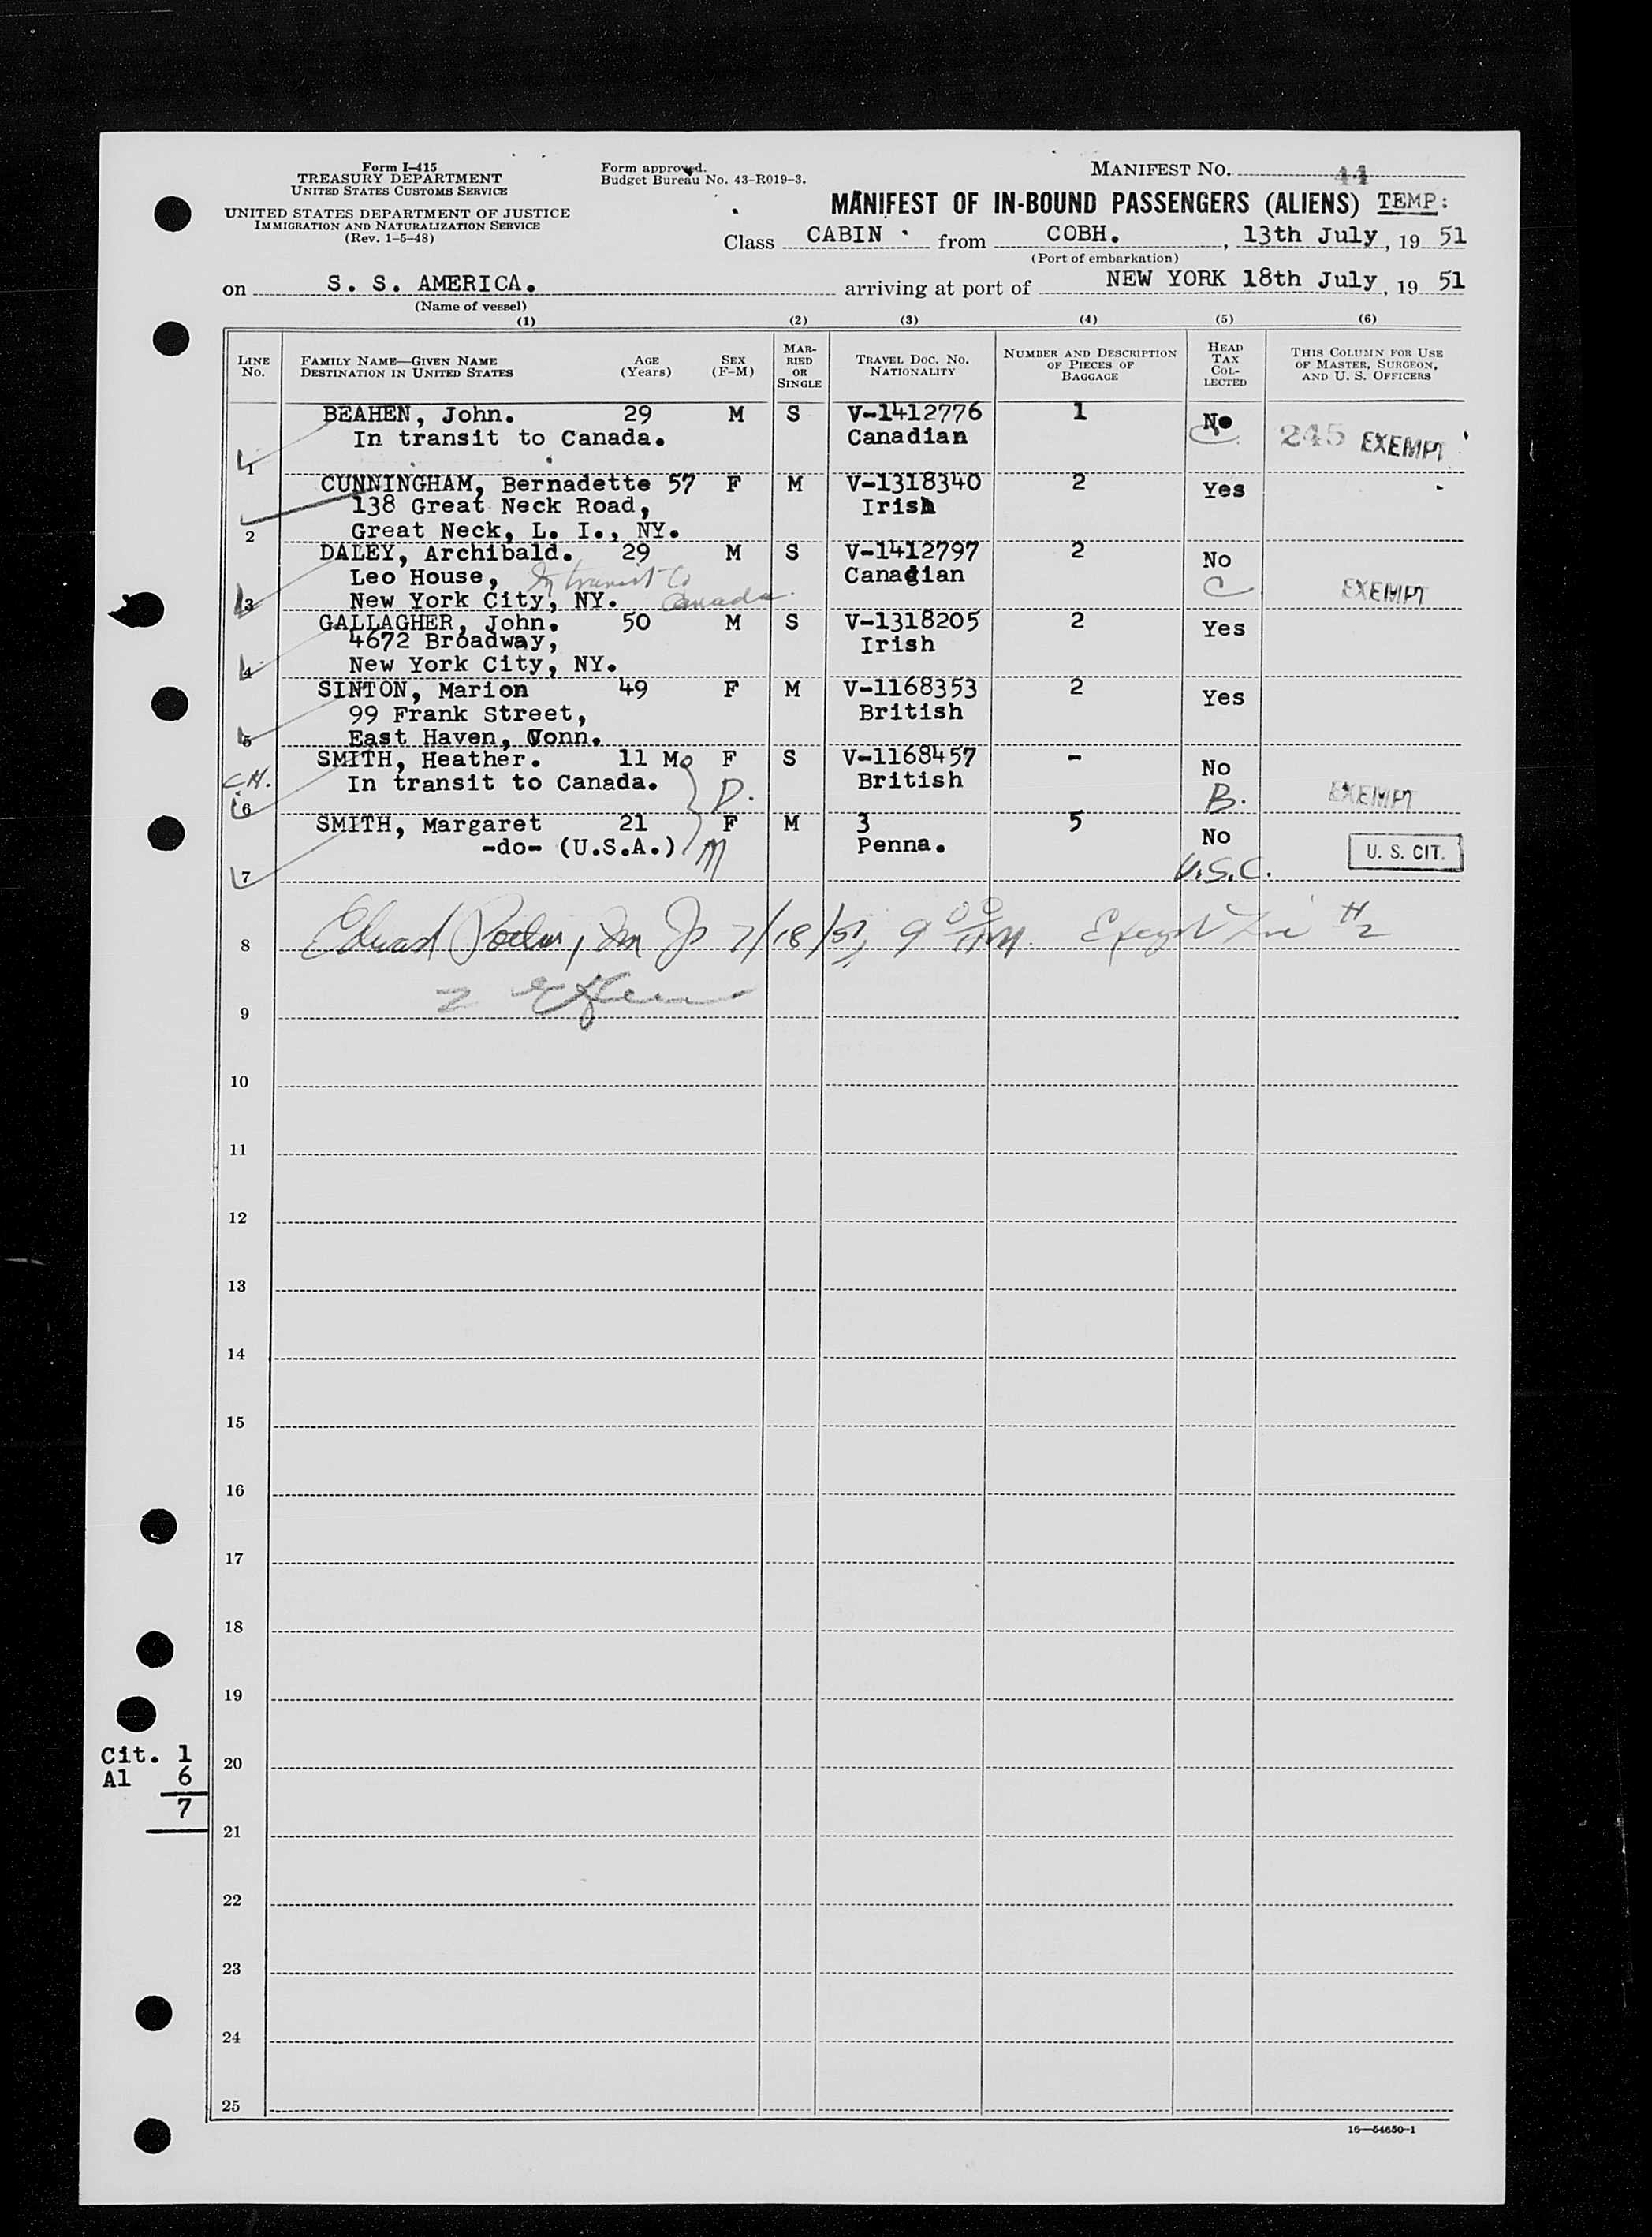 Form I-415
TREASURY DEPARTMENT
UNITED STATES CUSTOMS SERVICE
UNITED STATES DEPARTMENT OF JUSTICE
IMMIGRATION AND NATURALIZATION SERVICE
(Rev. 1-5-48)
Form approved.
Budget Bureau No. 43-R019-3.
MANIFEST No. 44
MANIFEST OF IN-BOUND PASSENGERS (ALIENS) TEMP:
Class CABIN from COBH. , 13th July, 19 51
(Port of embarkation)
on S. S. AMERICA. arriving at port of NEW YORK 18th July, 19 51
(Name of vessel)
(1) (2) (3) (4) (5) (6)
LINE No. FAMILY NAME—GIVEN NAME DESTINATION IN UNITED STATES AGE (Years) SEX (F-M) MARRIED OR SINGLE TRAVEL DOC. NO. NATIONALITY NUMBER AND DESCRIPTION OF PIECES OF BAGGAGE HEAD TAX COLLECTED THIS COLUMN FOR USE OF MASTER, SURGEON, AND U. S. OFFICERS
BEAHEN, John. 29 M S V-1412776 1 No
In transit to Canada. Canadian C 245 EXEMPT
1
CUNNINGHAM, Bernadette 57 F M V-1318340 2 Yes
138 Great Neck Road, Irish
2 Great Neck, L. I., NY.
DALEY, Archibald. 29 M S V-1412797 2 No
Leo House, In transit to Canadian C EXEMPT
3 New York City, NY. Canada.
GALLAGHER, John. 50 M S V-1318205 2 Yes
4672 Broadway, Irish
4 New York City, NY.
SINTON, Marion 49 F M V-1168353 2 Yes
99 Frank Street, British
5 East Haven, Conn.
SMITH, Heather. 11 Mo F S V-1168457 - No
C.H. In transit to Canada. D. British B. EXEMPT
6
SMITH, Margaret 21 F M 3 5 No
-do- (U.S.A.) M Penna. U.S.C. U. S. CIT.
7
8 Edward 7/18/51, 9 00 #2
9 2
10
11
12
13
14
15
16
17
18
19
Cit. 1
20
Al 6
7
21
22
23
24
25
16—54650-1